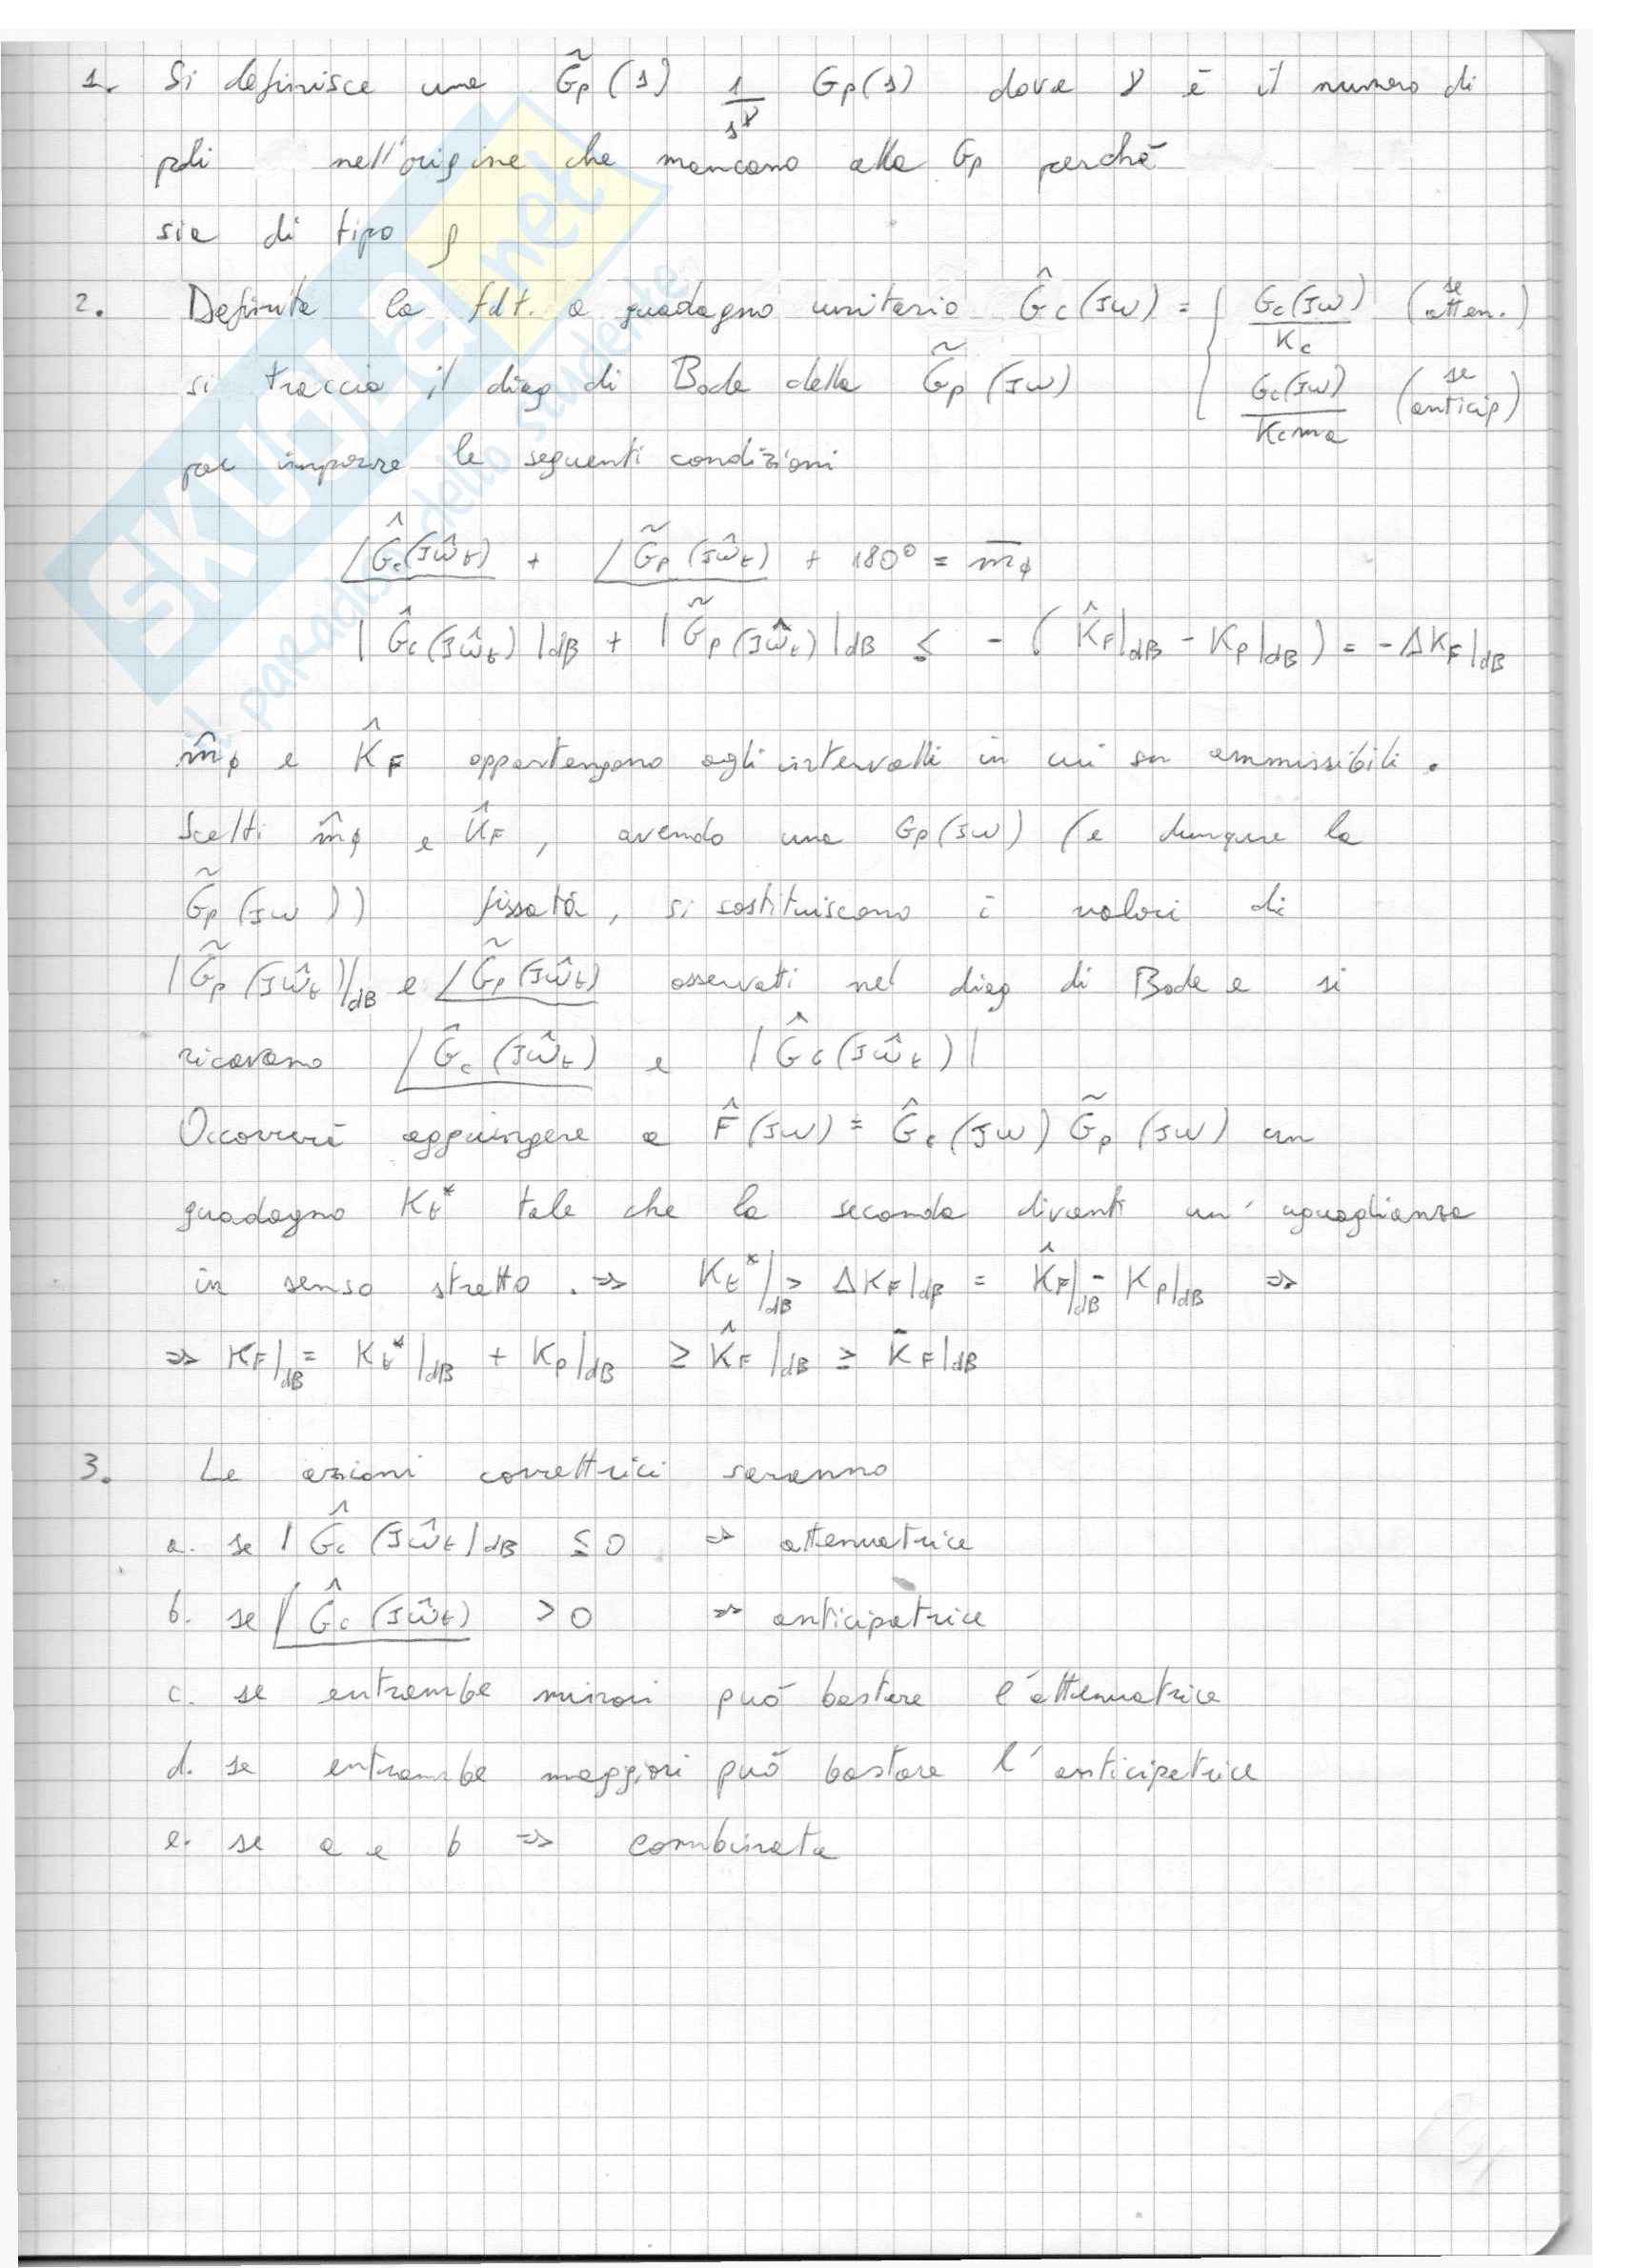 1. Si definisce una G̃p(s) 1/s^γ Gp(s) dove γ è il numero di
poli nell'origine che mancano alla Gp perché
sia di tipo ρ
2. Definita la fdt. a guadagno unitario Ĝc(Jω) = { Gc(Jω)/Kc (se atten.)
si traccia il diag di Bode della G̃p(Jω) Gc(Jω)/Kcma (se anticip)
per imporre le seguenti condizioni
∠Ĝc(Jω̂t) + ∠G̃p(Jω̂t) + 180° = m̅φ
|Ĝc(Jω̂t)|dB + |G̃p(Jω̂t)|dB ≤ - (K̂F|dB - Kp|dB) = -ΔKF|dB
m̂φ e K̂F appartengono agli intervalli in cui sn ammissibili.
Scelti m̂φ e K̂F, avendo una Gp(Jω) (e dunque la
G̃p(Jω)) fissata, si sostituiscono i valori di
|G̃p(Jω̂t)|dB e ∠G̃p(Jω̂t) osservati nel diag di Bode e si
ricavano ∠Ĝc(Jω̂t) e |Ĝc(Jω̂t)|
Occorrerà aggiungere a F̂(Jω) = Ĝc(Jω) G̃p(Jω) un
guadagno Kt* tale che la seconda diventi un' uguaglianza
in senso stretto. ⇒ Kt*|dB ≥ ΔKF|dB = K̂F|dB - Kp|dB ⇒
⇒ KF|dB = Kt*|dB + Kp|dB ≥ K̂F|dB ≥ K̄F|dB
3. Le azioni correttrici saranno
a. se |Ĝc(Jω̂t|dB ≤ 0 ⇒ attenuatrice
b. se ∠Ĝc(Jω̂t) > 0 ⇒ anticipatrice
c. se entrambe minori può bastare l'attenuatrice
d. se entrambe maggiori può bastare l'anticipatrice
e. se a e b ⇒ combinata
SKUOLA.net
il paradiso dello studente